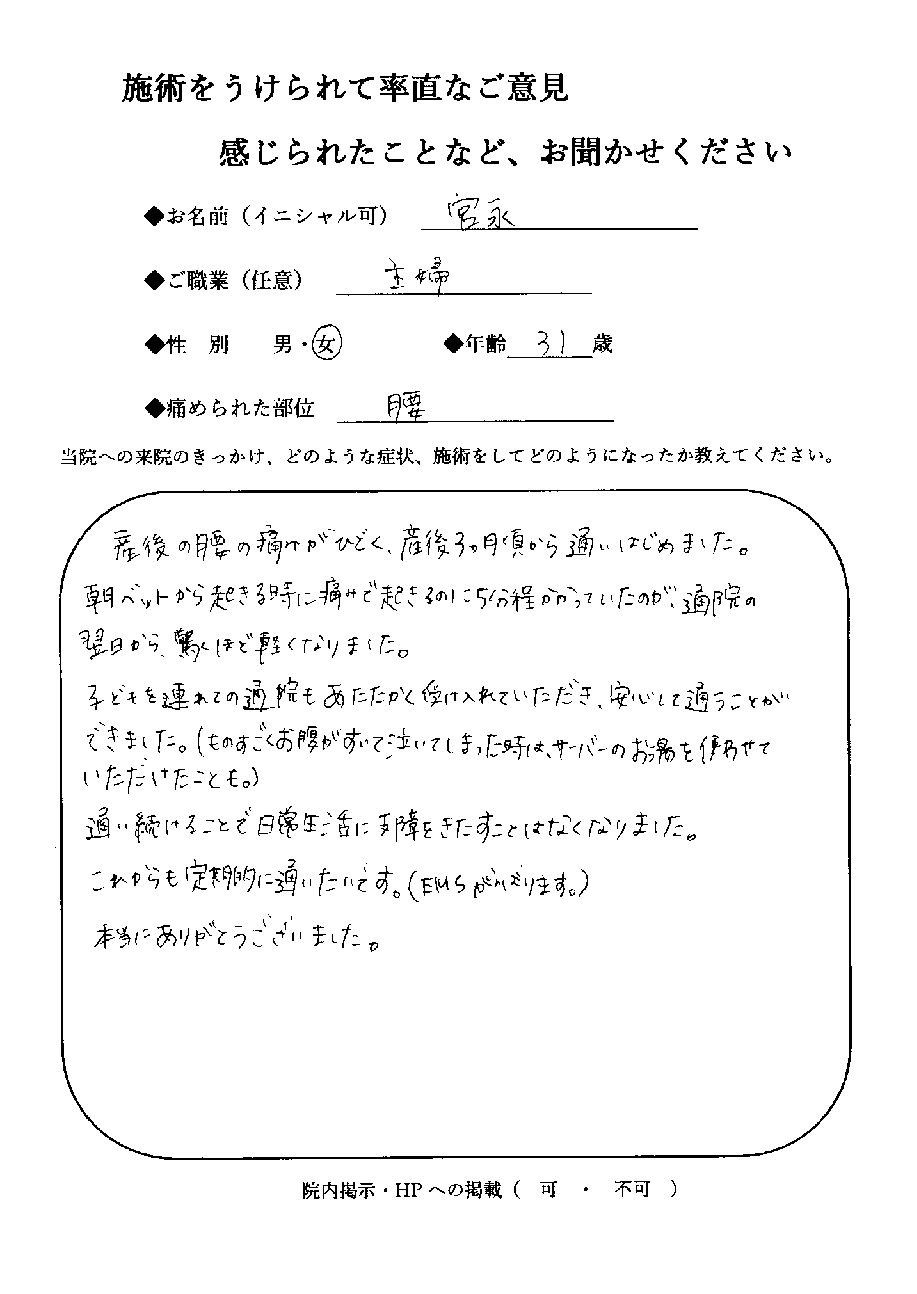 施術をうけられて率直なご意見
感じられたことなど、お聞かせください
◆お名前（イニシャル可） 宮永
◆ご職業（任意） 主婦
◆性 別 男・女 ◆年齢 31 歳
◆痛められた部位 腰
当院への来院のきっかけ、どのような症状、施術をしてどのようになったか教えてください。
産後の腰の痛みがひどく、産後3ヶ月頃から通いはじめました。
朝ベットから起きる時に痛みで起きるのに5分程かかっていたのが、通院の
翌日から、驚くほど軽くなりました。
子どもを連れての通院もあたたかく受け入れていただき、安心して通うことが
できました。(ものすごくお腹がすいて泣いてしまった時は、サーバーのお湯を使わせて
いただけたことも。)
通い続けることで日常生活に支障をきたすことはなくなりました。
これからも定期的に通いたいです。(EMSが
本当にありがとうございました。
院内掲示・HPへの掲載（ 可 ・ 不可 ）